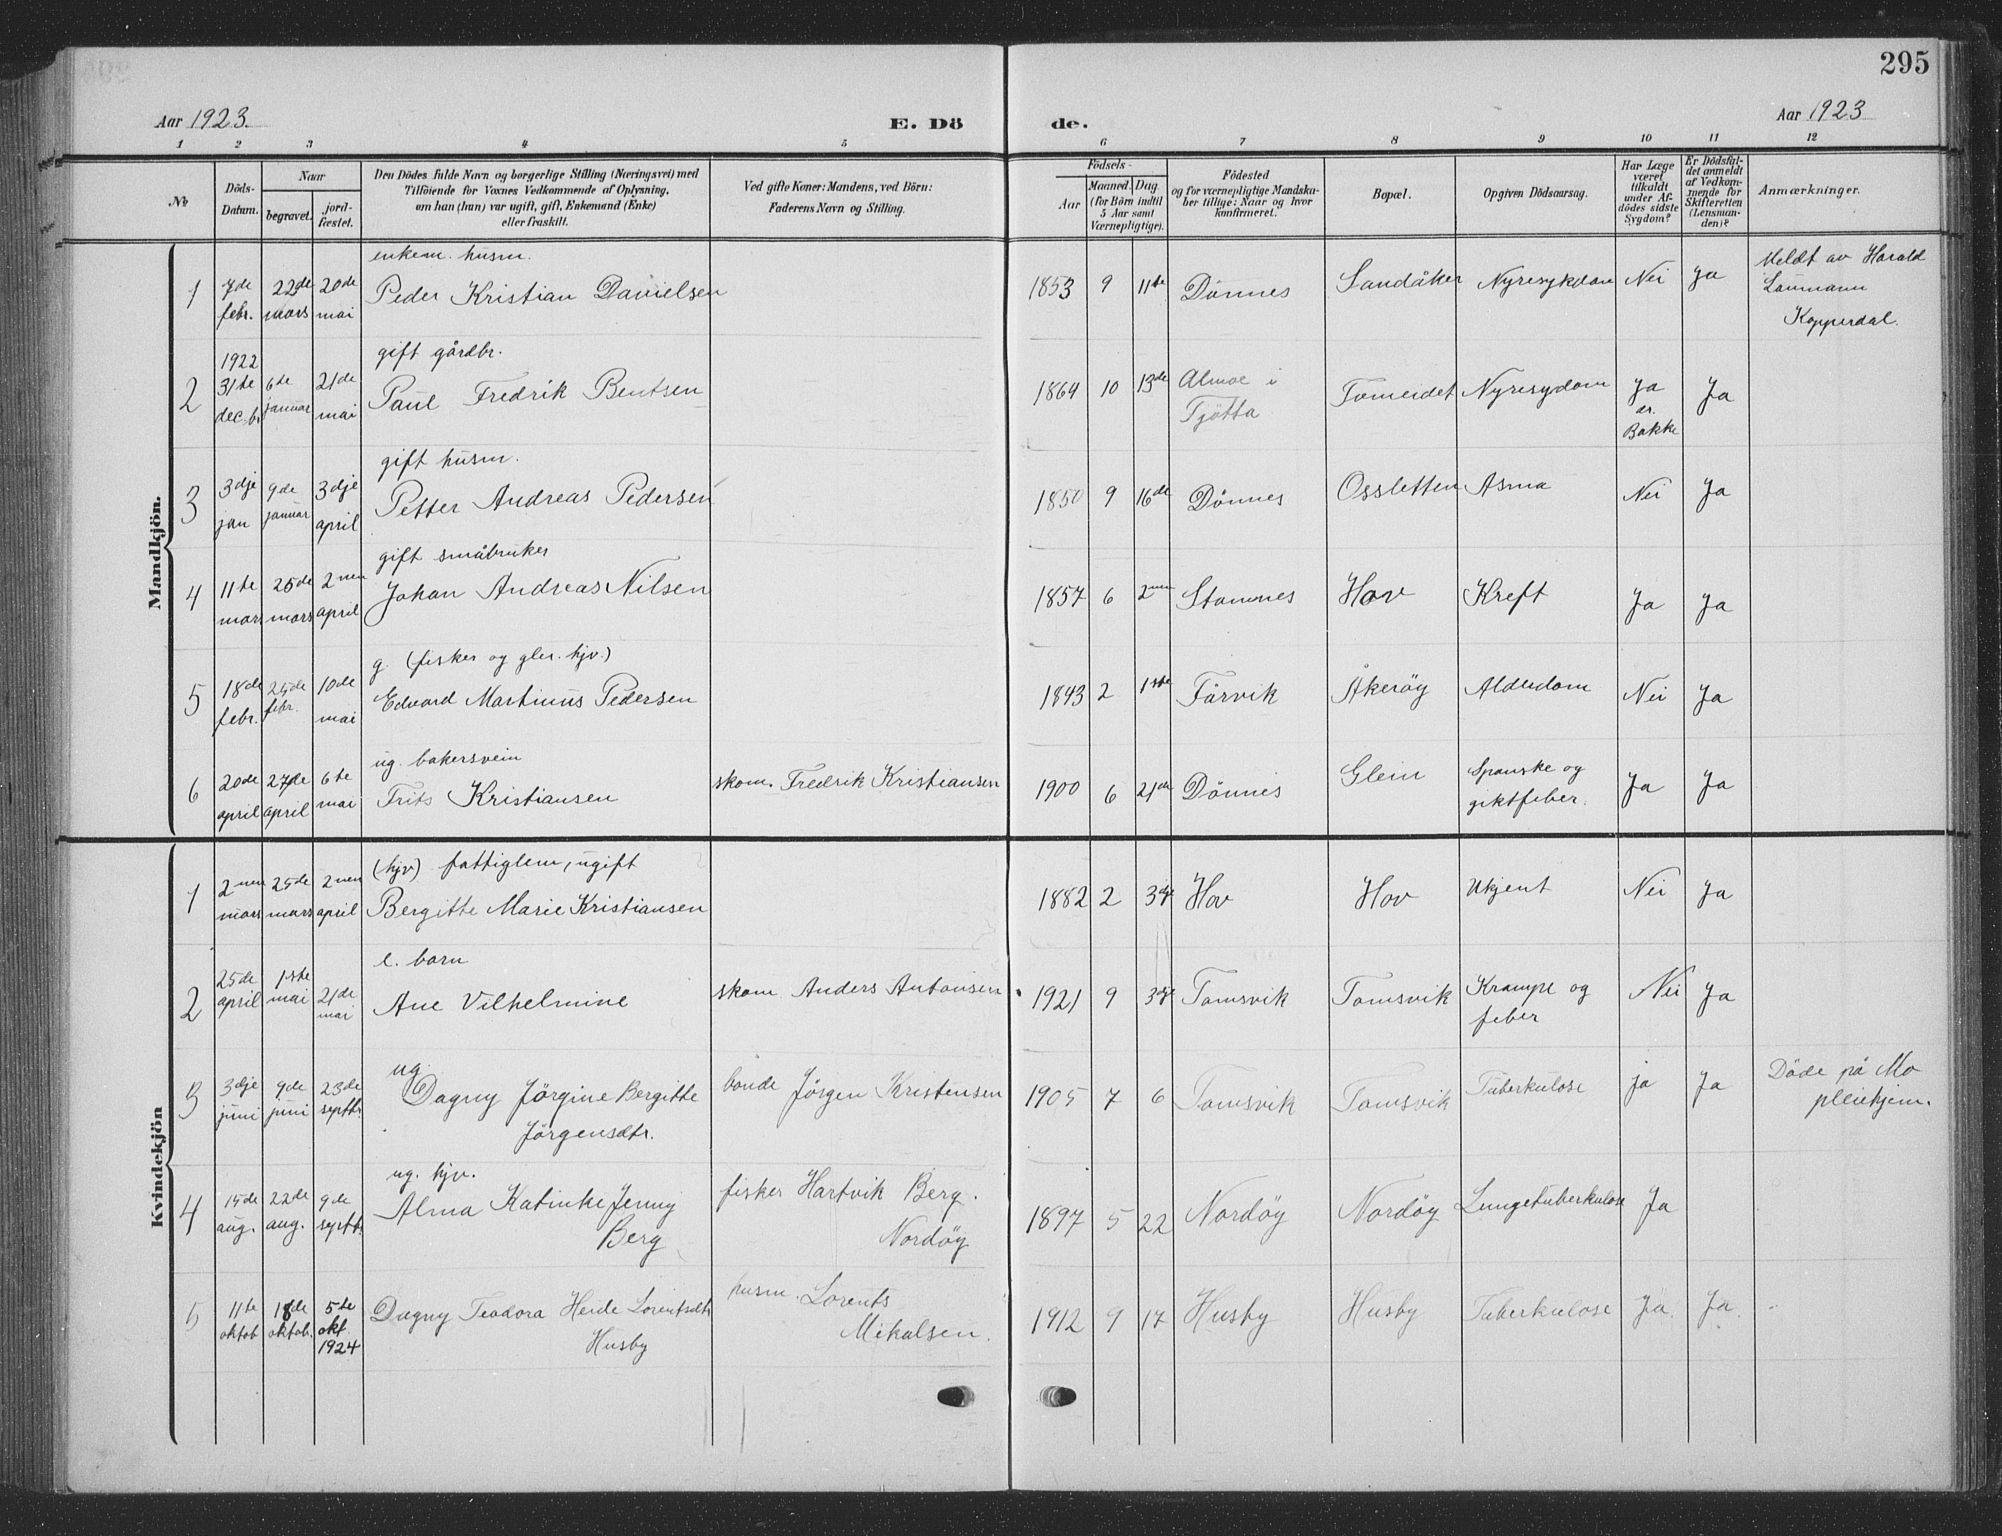 295
Aar 1923. E. Dö de. Aar 1923
1 2 3 4 5 6 7 8 9 10 11 12
№
Döds-Datum.
Naar
begravet.
jord-fæstet.
Den Dödes fulde Navn og borgerlige Stilling (Næringsvei) med
Tilföiende for Voxnes Vedkommende af Oplysning,
om han (hun) var ugift, gift, Enkemand (Enke)
eller fraskilt.
Ved gifte Koner: Mandens, ved Börn:
Faderens Navn og Stilling.
Födsels-
Aar
Maaned. Dag.
(for Börn indtil
5 Aar samt
Værnepligtige).
Födested
og for værnepligtige Mandska-
ber tillige: Naar og hvor
konfirmeret.
Bopæl.
Opgiven Dödsaarsag.
Har Læge
været
tilkaldt
under Af-
dödes sidste
Sygdom?
Er Dödsfal-
det anmeldt
af Vedkom-
mende for
Skifteretten
(Lensman-
den)?
Anmærkninger.
Mandkjön.
enkem. husm.
1 7de febr. 22de mars 20de mai Peder Kristian Danielsen 1853 9 11te Dönnes Sandåker Nyresykdom Nei Ja Meldt av Harald
Kopperdal.
gift gårdbr.
2 1922 31te decbr 6te januar 21de mai Paul Fredrik Bentsen 1864 10 13de Almoe i Tjötta Tomeidet Nyresydom Ja dr. Bakke Ja
gift husm.
3 3dje jan 9de januar 3dje april Petter Andreas Pedersen 1850 9 16de Dönnes Ossletten Asma Nei Ja
gift småbruker
4 11te mars 25de mars 2nen april Johan Andreas Nilsen 1857 6 2nen Stamnes Hov Kreft Ja Ja
g. (fisker og gler. hjv.)
5 18de febr. 25de febr. 10de mai Edvard Martinus Pedersen 1843 2 1ste Fårvik Åkeröy Alderdom Nei Ja
ug. bakersvein
6 20de april 27de april 6te mai Frits Kristiansen skom. Fredrik Kristiansen 1900 6 21de Dönnes Glein Spanske og giktfeber. Ja Ja
Kvindekjön
(hjv) fattiglem, ugift
1 2nen mars 25de mars 2nen april Bergitte Marie Kristiansen 1882 2 3dje Hov Hov Ukjent Nei Ja
e. barn
2 25de april 1ste mai 21de mai Ane Vilhelmine skom Anders Antonsen 1921 9 3dje Tomsvik Tomsvik Krampe og feber Nei Ja
ug
3 3dje juni 9de juni 23de septbr. Dagny Jörgine Bergitte Jörgensdtr. bonde Jörgen Kristensen 1905 7 6 Tomsvik Tomsvik Tuberkulose ja Ja Döde på Mo
pleiehjem.
ug. hjv.
4 15de aug. 22de aug. 9de septbr. Alma Katinke Jenny Berg fisker Hartvik Berg. Nordöy 1897 5 22 Nordöy Nordöy Lungetuberkulose Ja
5 11te oktob 18de oktob. 5te okt 1924 Dagny Teodora Heide Lorentsdtr Husby husm. Lorents Mikalsen. 1912 9 17 Husby Husby Tuberkulose Ja. Ja.